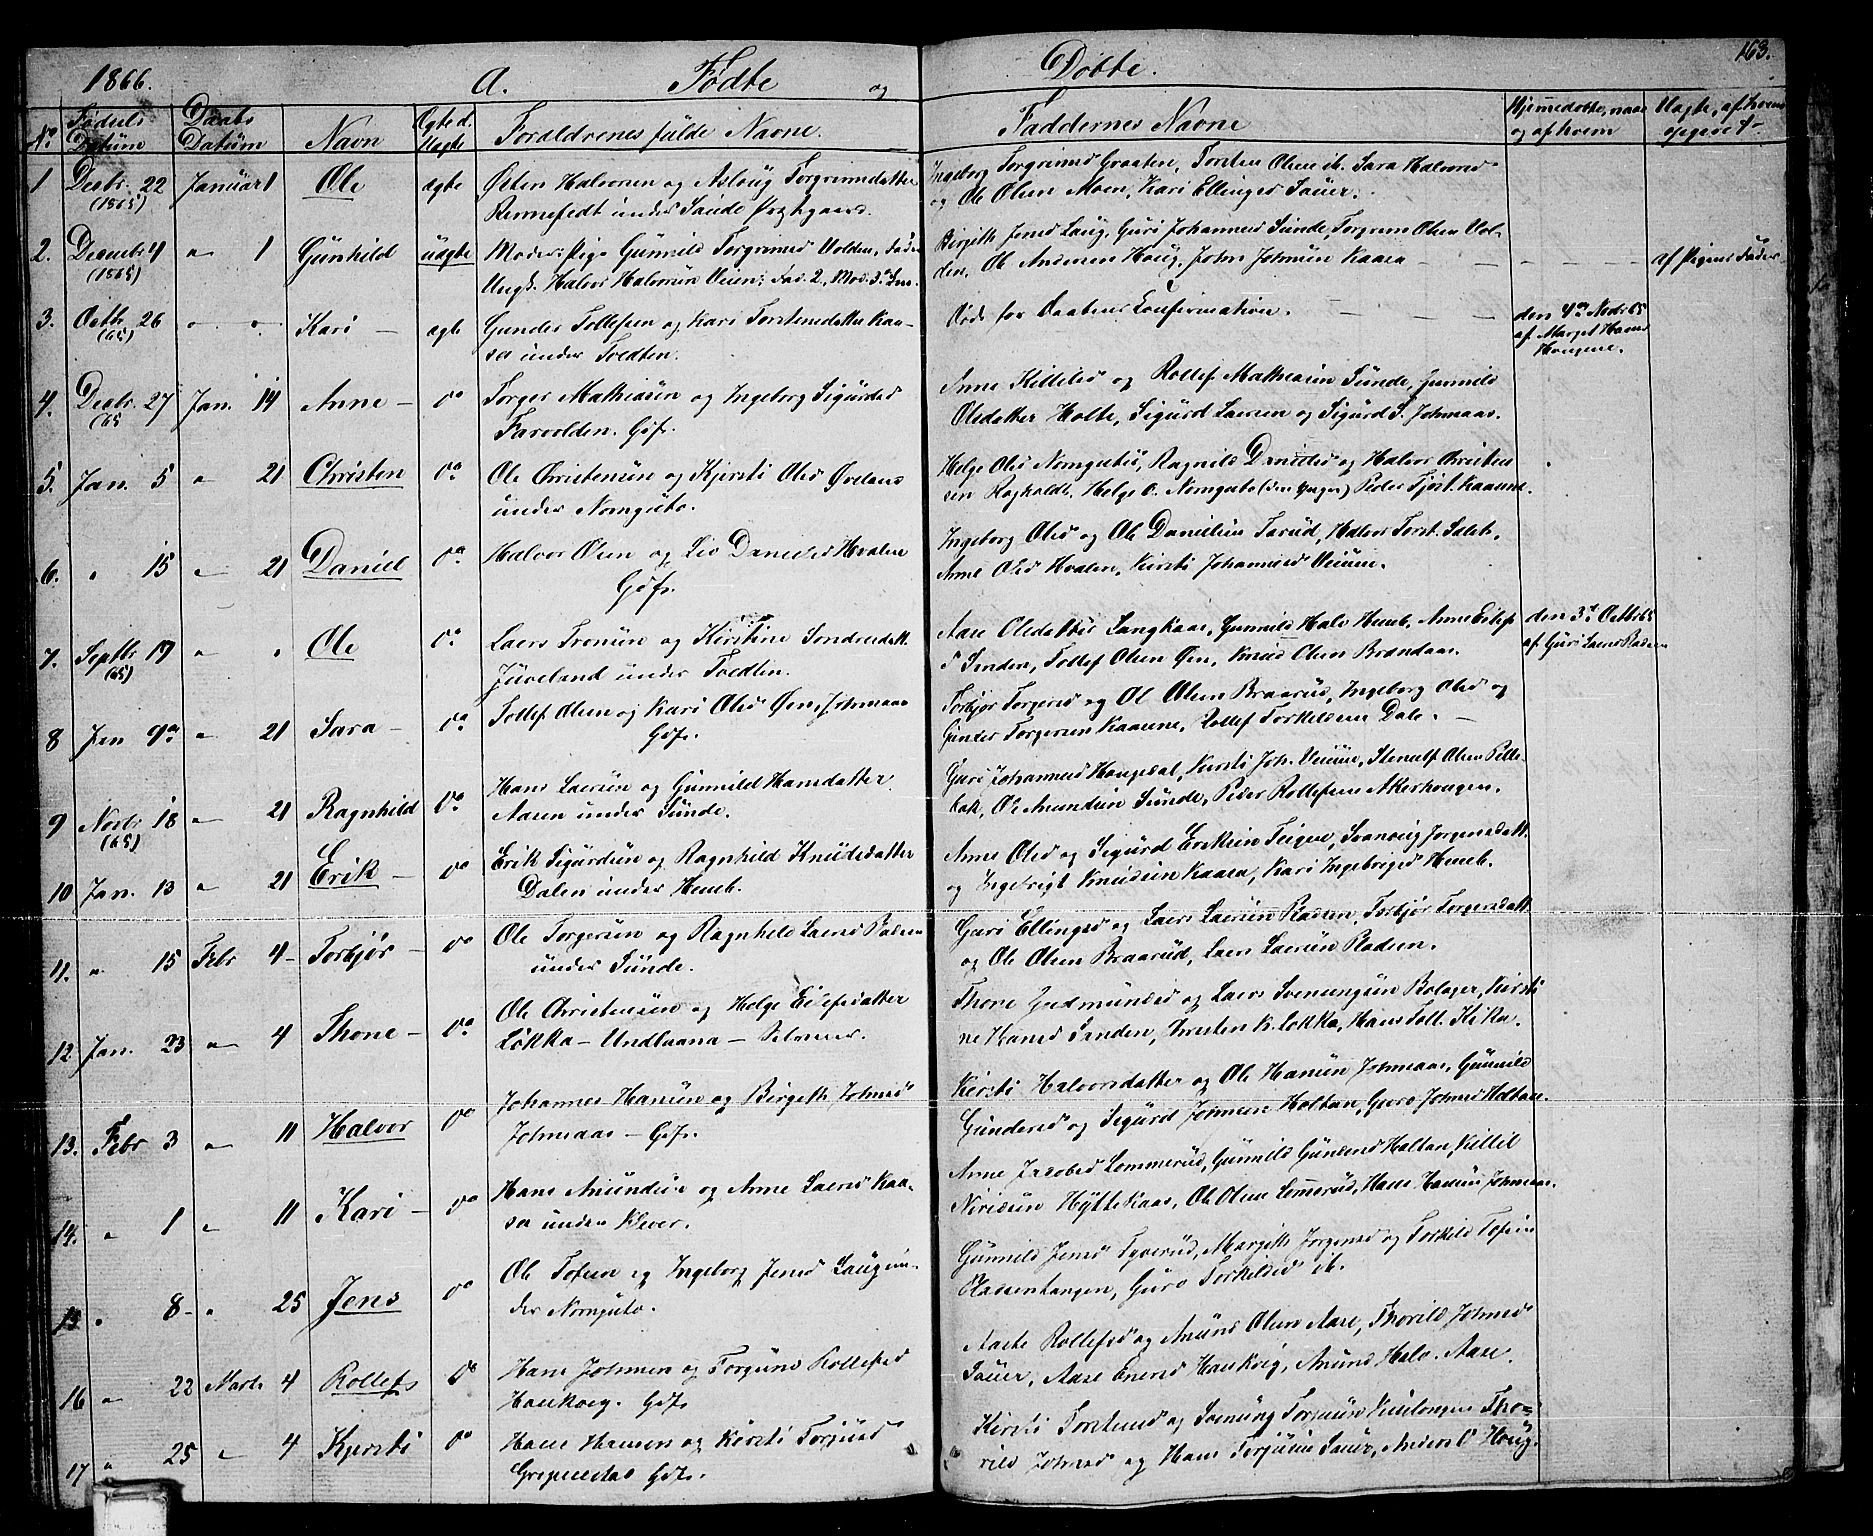 1866. A. Födte og Döbte. 163.
No Födsels Datüm Daabs Datüm Navn Ægte el. Uægte Foraldrenes fulde Navne. Faddernes Navne Hjemmedöbte, naar og af hvem Uægte, af hvem opgivet
1 Decbr. 22 (1865) Januar 1 Ole ægte Østen Halvorsen og Aslaug Torgrimsdatter
Rennefedt under Saude Præstgaard.
Ingeborg Torgrimsd Graaten, Torsten Olsen ib. Sara Halvorsd
og Ole Olsen Moen, Kari Ellingsd Sauer.
2. Decembr 4 (1865) " 1 Gunhild uægte Moder: Pige Gunnild Torgrimsd Volden, Fader
Ungk. Halvor Halvorsen Veien; Fad. 2, Mod. 3
Birgith Jensd Laug, Guri Johannesd Sunde, Torgrim Olsen Vol-
den, Ole Andersen Houg, John Johnsen Kaasa
af Pigens Fader
3. Octbr 26 (65) " " Kari - ægte Gunder Tollefsen og Kari Torstensdatter Kaa-
sa under Tvedten.
Döde för Daabens Confirmation.
den 4de Novbr 65
af Marget Hansd
Hougene.
4. Decbr. 27 (65 Jan. 14 Anne - do Torger Mathiasen og Ingeborg Sigurdsd
Farvolden. Gdfr.
Anne Killilsd og Rollef Mathiasen Sunde, Gunnild
Olsdatter Holte, Sigurd Larsen og Sigurd S. Johnsaas.
5. Jan. 5 " 21 Christen do Ole Christensen og Kjersti Olsd Øvelans
under Nomguto.
Helge Olsd Nomguto, Ragnild Danielsd og Halvor Christen
sen Roghold, Helge O. Nomguto (den yngre) Peder Kaasene.
6. " 15 " 21 Daniel do Halvor Olsen og Liv Danielsd Hvalen
Gdfr.
Ingeborg Olsd og Ole Danielsen Tarud, Halvor Torst.
Anne Olsd Hvalen, Kirsti Johannesd Veium.
7. Septbr 19 (65) " " Ole do Laers Tronsen og Kirstine Sondresdatt.
Juveland under Tvedten.
Aase Olsdatter Langkaas, Gunnild Halv. Hemb, Anne Eilef
Sanden, Tollef Olsen Øen, Knud Olsen Brændaas.
den 3d Octbr 65
af Guri Laersd Radsen
8 Jan 9de " 21 Sara - do Tollef Olsen og Kari Olsd Øen, Johnsaas
Gdfr.
Torbjör Torgersd og Ol Olsen Braarud, Ingeborg Olsd og
Gunder Torgersen Kaasene, Rollef Torkildsen Dale. -
9 Novbr 18 (65) " 21 Ragnhild do Hans Larsen og Gunnild Hansdatter
Aasen under Sunde.
Guri Johannesd Hougedal, Kirsti Joh. Veium, Stenulf Olsen Pille-
bak, Ole Amundsen Sunde, Peder Rollefsen Akerhougen.
10 Jan. 13 " 21 Erik - do Erik Sigurdsen og Ragnhild Knudsdatter
Dalen under Hemb.
Anne Olsd og Sigurd Eriksen Teigen, Svanoug Jorgensdatt.
og Ingebrigt Knudsen Kaasa, Kari Ingebrigtsd Hemb.
11. " 15 Febr 4- Torbjør - do Ole Torgersen og Ragnhild Laersd Radsen
under Sunde.
Guri Ellingsd og Laers Laersen Radsen, Torbjör Torgersdatt.
og Ole Olsen Braarud, Laers Laersen Radsen.
12 Jan. 23 " 4 Thone - do Ole Christensen og Helge Eilefsdatter
Løkka - Undlaana - Selveier.
Thone Gudmundsd og Laers Svenungsen Bolager, Kirsti
ne Hansd Sanden, Kristen K. Løkka, Hans Toll. Kika.
13. Febr 3 " 11 Halvor do Johannes Hansen og Birgith Johnsd
Johnsaas - Gdfr.
Kirsti Halvorsdatter og Ole Hansen Johnsaas, Gunnild
Gundersd og Sigurd Johnsen Holtan, Guro Johnsd Holtan.
14. " 1 " 11 Kari - do Hans Amundsen og Anne Laersd Kaa-
sa under Klever.
Anne Jacobsd Lommerud, Gunnild Gundersd Holtan, Killil
Nirisen Hyttekaas, Ole Olsen Lomerud, Hans Hansen Johnsaas.
15 " 8- " 25 Jens do Ole Tofsen og Ingeborg Jensd Laug un-
der Nomguto.
Gunnild Jensd Tyverud, Margith Jorgensd og Torkild Tofsen
Klassentangen, Guro Torkildsd ib.
16 " 22 Marts 4 Rollef do Hans Johnsen og Torgune Rollefsd
Haukvig. Gdfr
Aaste Rollefsd og Amund Olsen Aase, Thorild Johnsd
Sauer, Aase Enersd Haukvig, Amund Halv. Aase.
17 " 25 " 4 Kjersti do Hans Hansen og Kirsti Torjusd
Grepnestad Gdfr.
Kirsti Torstensd og Svenung Torjusen Tho-
rild Johnsd og Hans Torjusen Sauer, Anders O Houg.